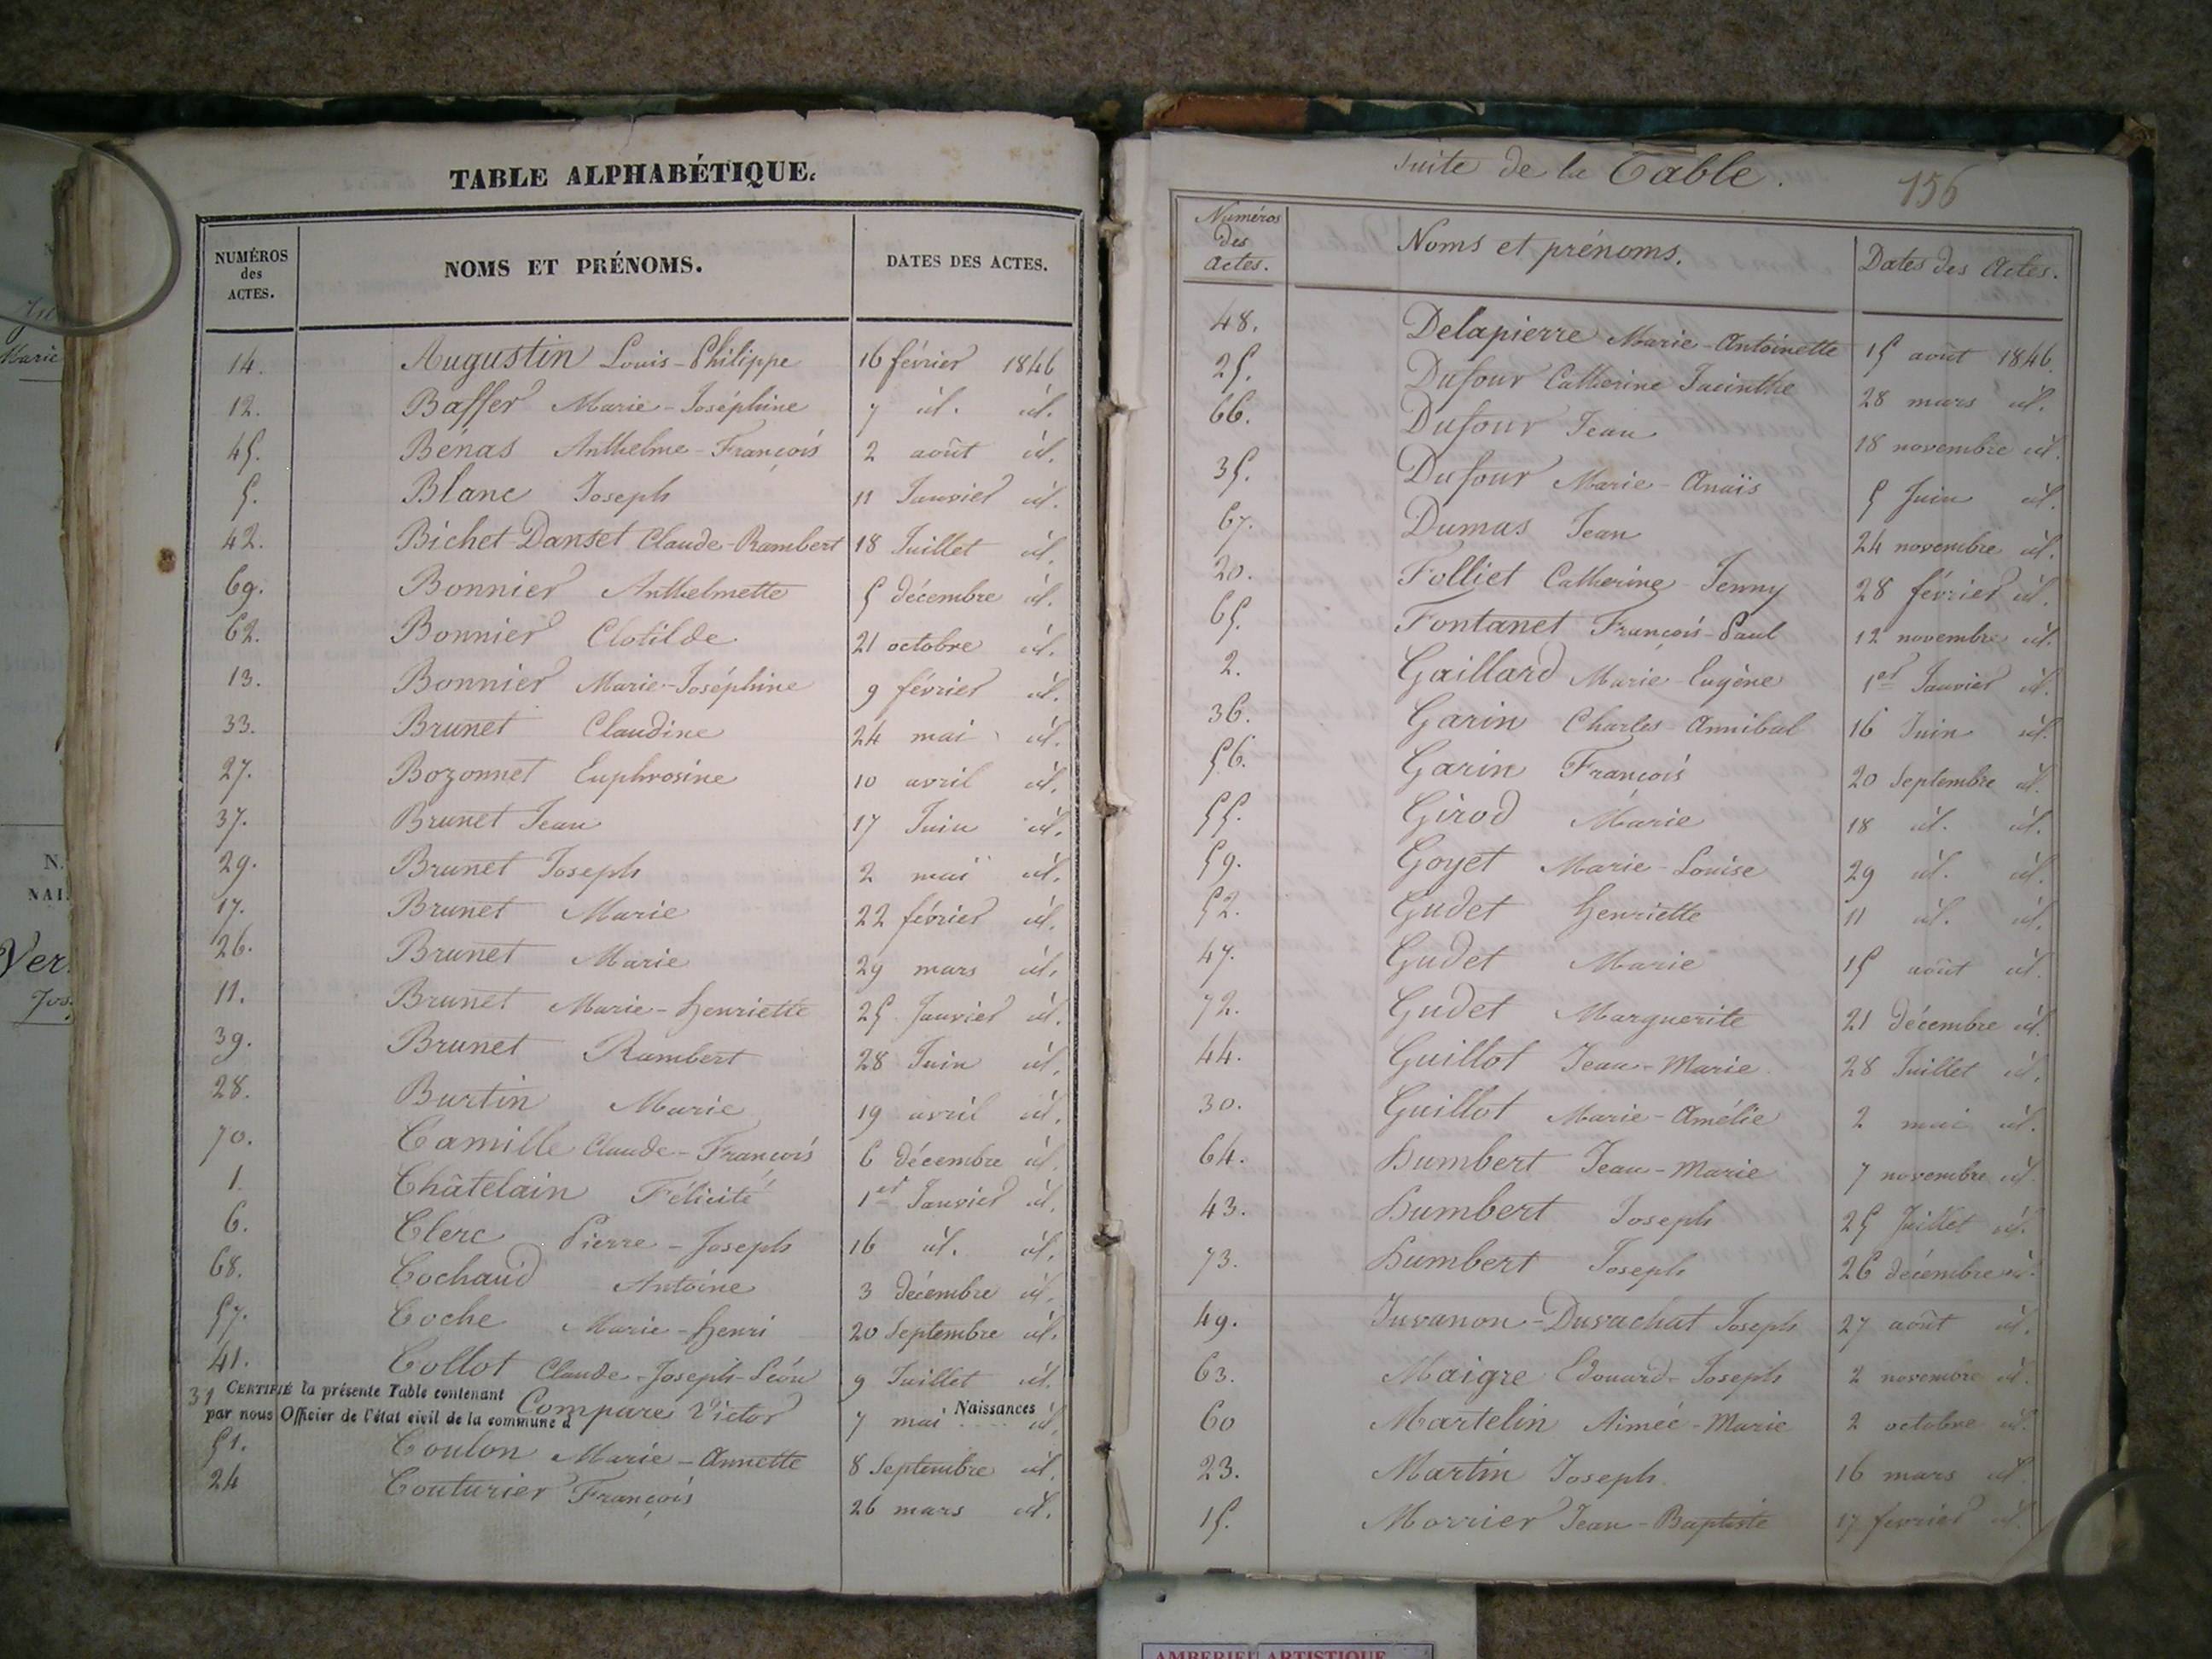 TABLE ALPHABÉTIQUE.
NUMÉROS des ACTES. NOMS ET PRÉNOMS. DATES DES ACTES.
14. Augustin Louis-Philippe 16 février 1846
12. Baffer Marie-Joséphine 7 id. id.
45. Bénas Anthelme-François 2 août id.
5. Blanc Joseph 11 Janvier id.
42. Bichet-Danset Claude-Rambert 18 Juillet id.
69. Bonnier Anthelmette 5 décembre id.
62. Bonnier Clotilde 21 octobre id.
13. Bonnier Marie-Joséphine 9 février id.
33. Brunet Claudine 24 mai id.
27. Bozonnet Euphrosine 10 avril id.
37. Brunet Jean 17 Juin id.
29. Brunet Joseph 2 mai id.
17. Brunet Marie 22 février id.
26. Brunet Marie 29 mars id.
11. Brunet Marie-henriette 25 Janvier id.
39. Brunet Rambert 28 Juin id.
28. Burtin Marie 19 avril id.
70. Camille Claude-François 6 décembre id.
1. Châtelain Félicité 1er Janvier id.
6. Clerc Pierre-Joseph 16 id. id.
68. Cochaud Antoine 3 décembre id.
57. Coche Marie-henri 20 Septembre id.
41. Collot Claude-Joseph-Léon 9 Juillet id.
CERTIFIÉ la présente Table contenant Naissances
31 Compare Victor 7 mai id.
par nous Officier de l'état civil de la commune d
51. Coulon Marie-Annette 8 Septembre id.
24 Couturier François 26 mars id.
Marie
N.
NAI
Ver
Jos
Suite de la Table.
156
Numéros des Actes. Noms et prénoms. Dates des Actes.
48. Delapierre Marie-Antoinette 15 août 1846.
25. Dufour Catherine Jacinthe 28 mars id.
66. Dufour Jean 18 novembre id.
35. Dufour Marie-Anaïs 5 Juin id.
67. Dumas Jean 24 novembre id.
20. Folliet Catherine-Jenny 28 février id.
65. Fontanet François-Paul 12 novembre id.
2. Gaillard Marie-Eugène 1er Janvier id.
36. Garin Charles-Annibal 16 Juin id.
56. Garin François 20 Septembre id.
55. Girod Marie 18 id. id.
59. Goyet Marie-Louise 29 id. id.
52. Gudet henriette 11 id. id.
47. Gudet Marie 15 août id.
72. Gudet Marguerite 21 décembre id.
44. Guillot Jean-Marie 28 Juillet id.
30. Guillot Marie-Amélie 2 mai id.
64. Humbert Jean-Marie 7 novembre id.
43. Humbert Joseph 25 Juillet id.
73. Humbert Joseph 26 décembre id.
49. Juvanon-Duvachat Joseph 27 août id.
63. Maigre Edouard-Joseph 2 novembre id.
60 Martelin Aimée-Marie 2 octobre id.
23. Martin Joseph. 16 mars id.
15. Morrier Jean-Baptiste 17 février id.
AMBERIEU ARTISTIQUE